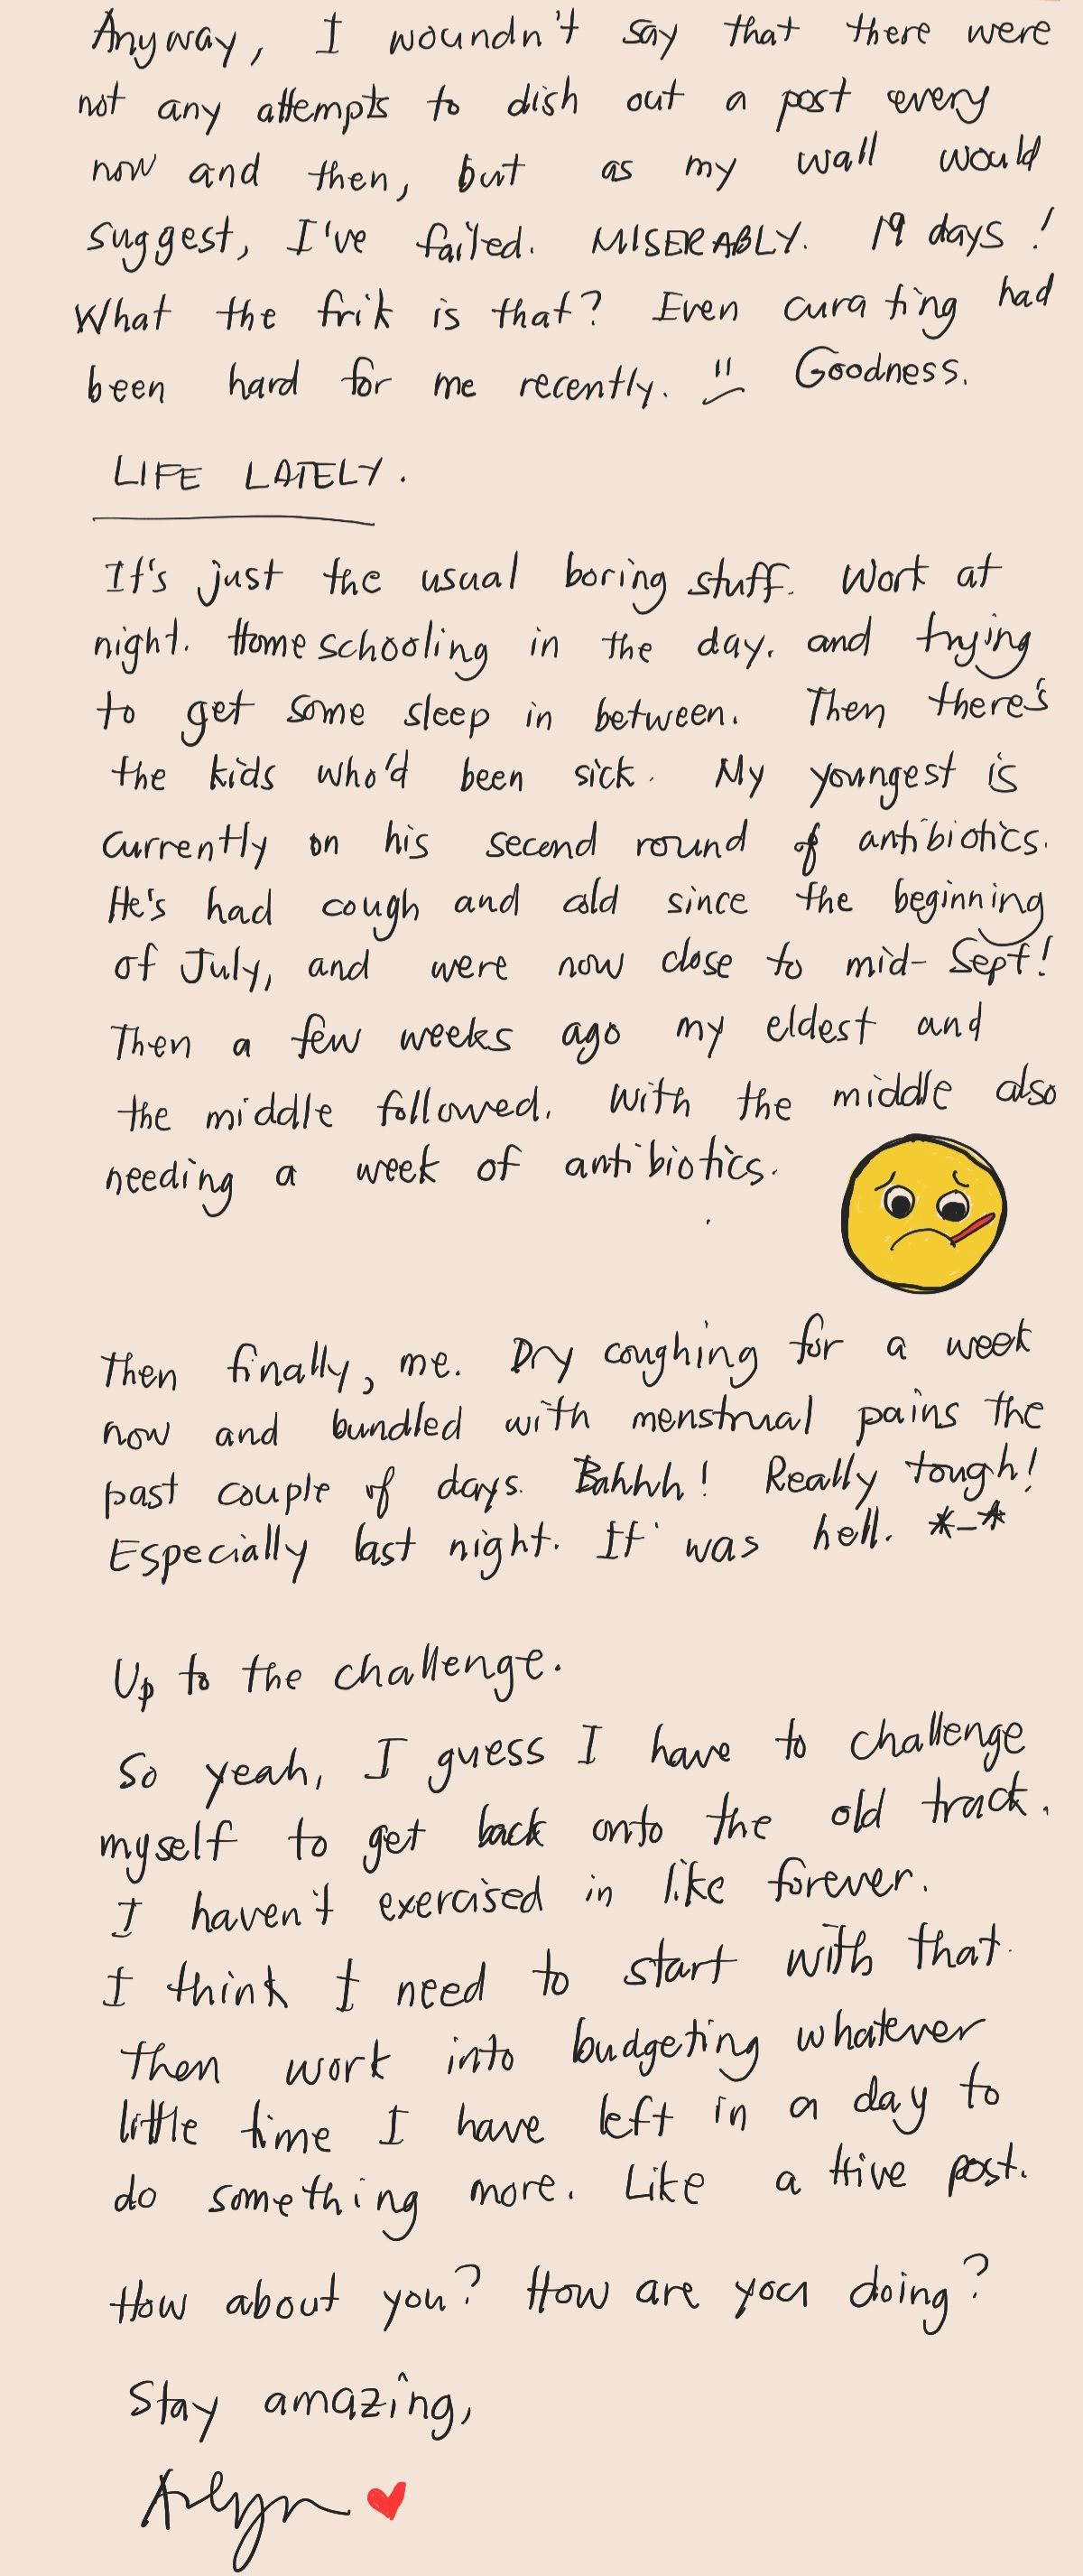 Anyway, I woundn't say that there were
not any attempts to dish out a post every
now and then, but as my wall would
suggest, I've failed. MISERABLY. 19 days!
What the frik is that? Even curating had
been hard for me recently. Goodness.
LIFE LATELY.
It's just the usual boring stuff. Work at
night. Homeschooling in the day. and trying
to get some sleep in between. Then there's
the kids who'd been sick. My youngest is
currently on his second round of antibiotics.
He's had cough and cold since the beginning
of July, and were now close to mid-Sept!
Then a few weeks ago my eldest and
the middle followed. With the middle also
needing a week of antibiotics.
Then finally, me. Dry coughing for a week
now and bundled with menstrual pains the
past couple of days. Bahhh! Really tough!
Especially last night. It was hell. *-*
Up to the challenge.
So yeah, I guess I have to challenge
myself to get back onto the old track.
I haven't exercised in like forever.
I think I need to start with that.
Then work into budgeting whatever
little time I have left in a day to
do something more. Like a Hive post.
How about you? How are you doing?
Stay amazing,
Arlyn